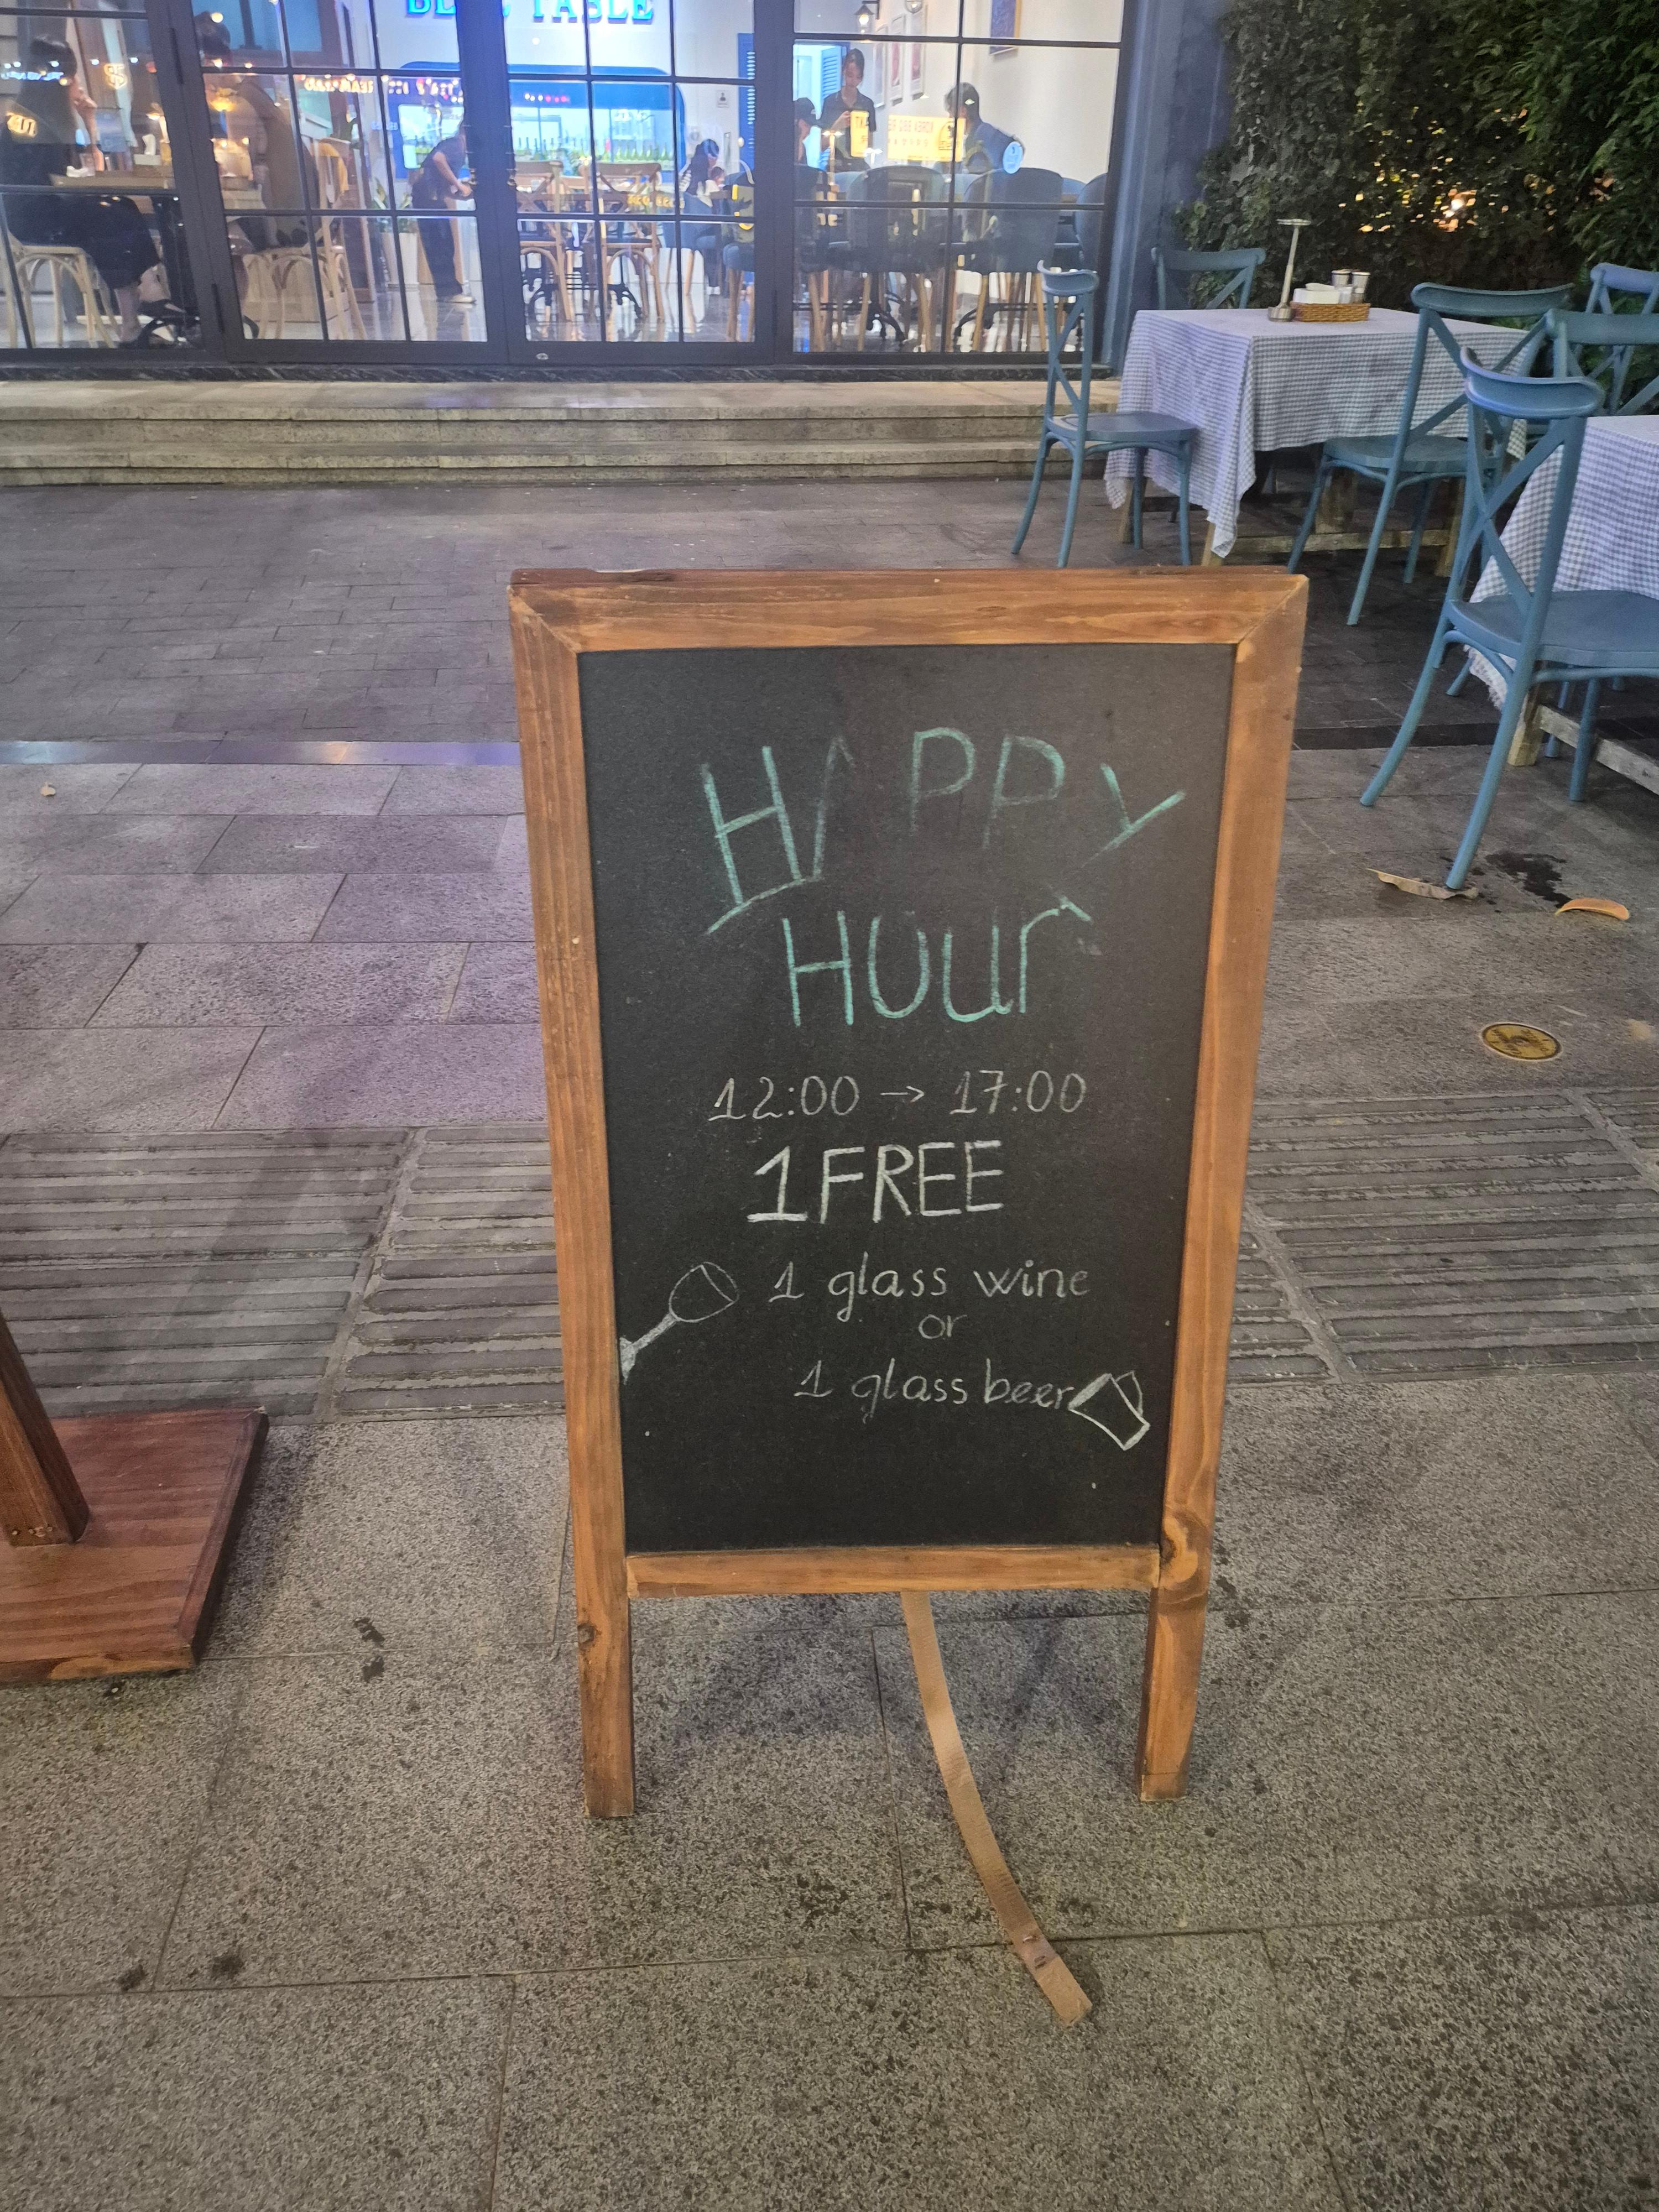 TABLE
HAPPY
HOUr
12:00 → 17:00
1 FREE
1 glass wine
or
1 glass beer